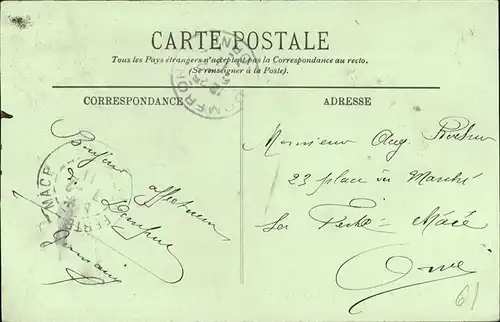 CARTE POSTALE
Tous les Pays étrangers n'acceptent pas la Correspondance au recto.
(Se renseigner à la Poste).
CORRESPONDANCE
ADRESSE
Bonjour
affectueux
de
Monsieur Aug.
23 place du Marché
La Ferté = Macé
Orne
61